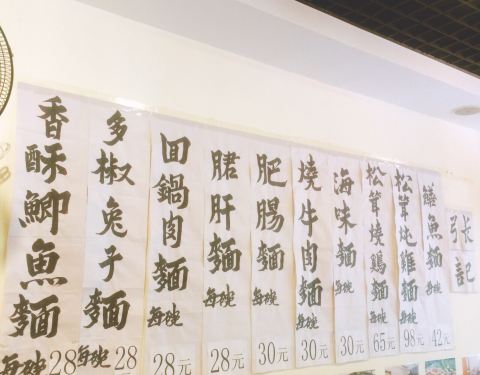 香酥鯽魚麵 每碗 28
多椒兔子麵 每碗 28
回鍋肉麵 每碗 28元
肝麵 每碗 28元
肥腸麵 每碗 30元
燒牛肉麵 每碗 30元
海味麵 每碗 30元
松茸燒鷄麵 每碗 65元
松茸炖雞麵 每碗 98元
鱔魚麵 每碗 42元
張記